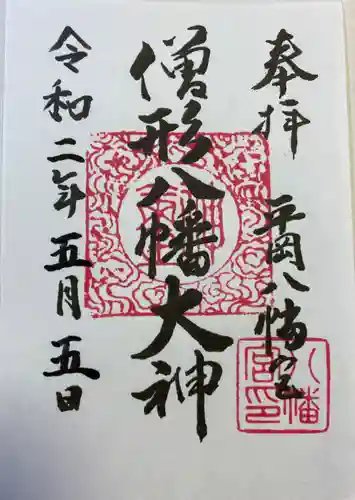 奉拝 平岡八幡宮
僧形八幡大神
令和二年五月五日
八幡宮印